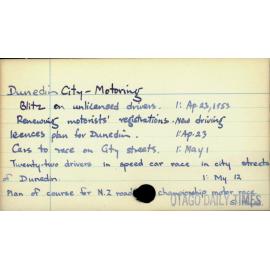 Dunedin City - Motoring
Blitz on unlicensed drivers. 1: Ap.23,1953
Renewing motorists' registrations. New driving
licences plan for Dunedin. 1: Ap.23
Cars to race on City streets. 1: May 1
Twenty-two drivers in speed car race in city streets
of Dunedin. 1: My. 12
Plan of course for N.Z road championship motor race
OTAGO DAILY TIMES